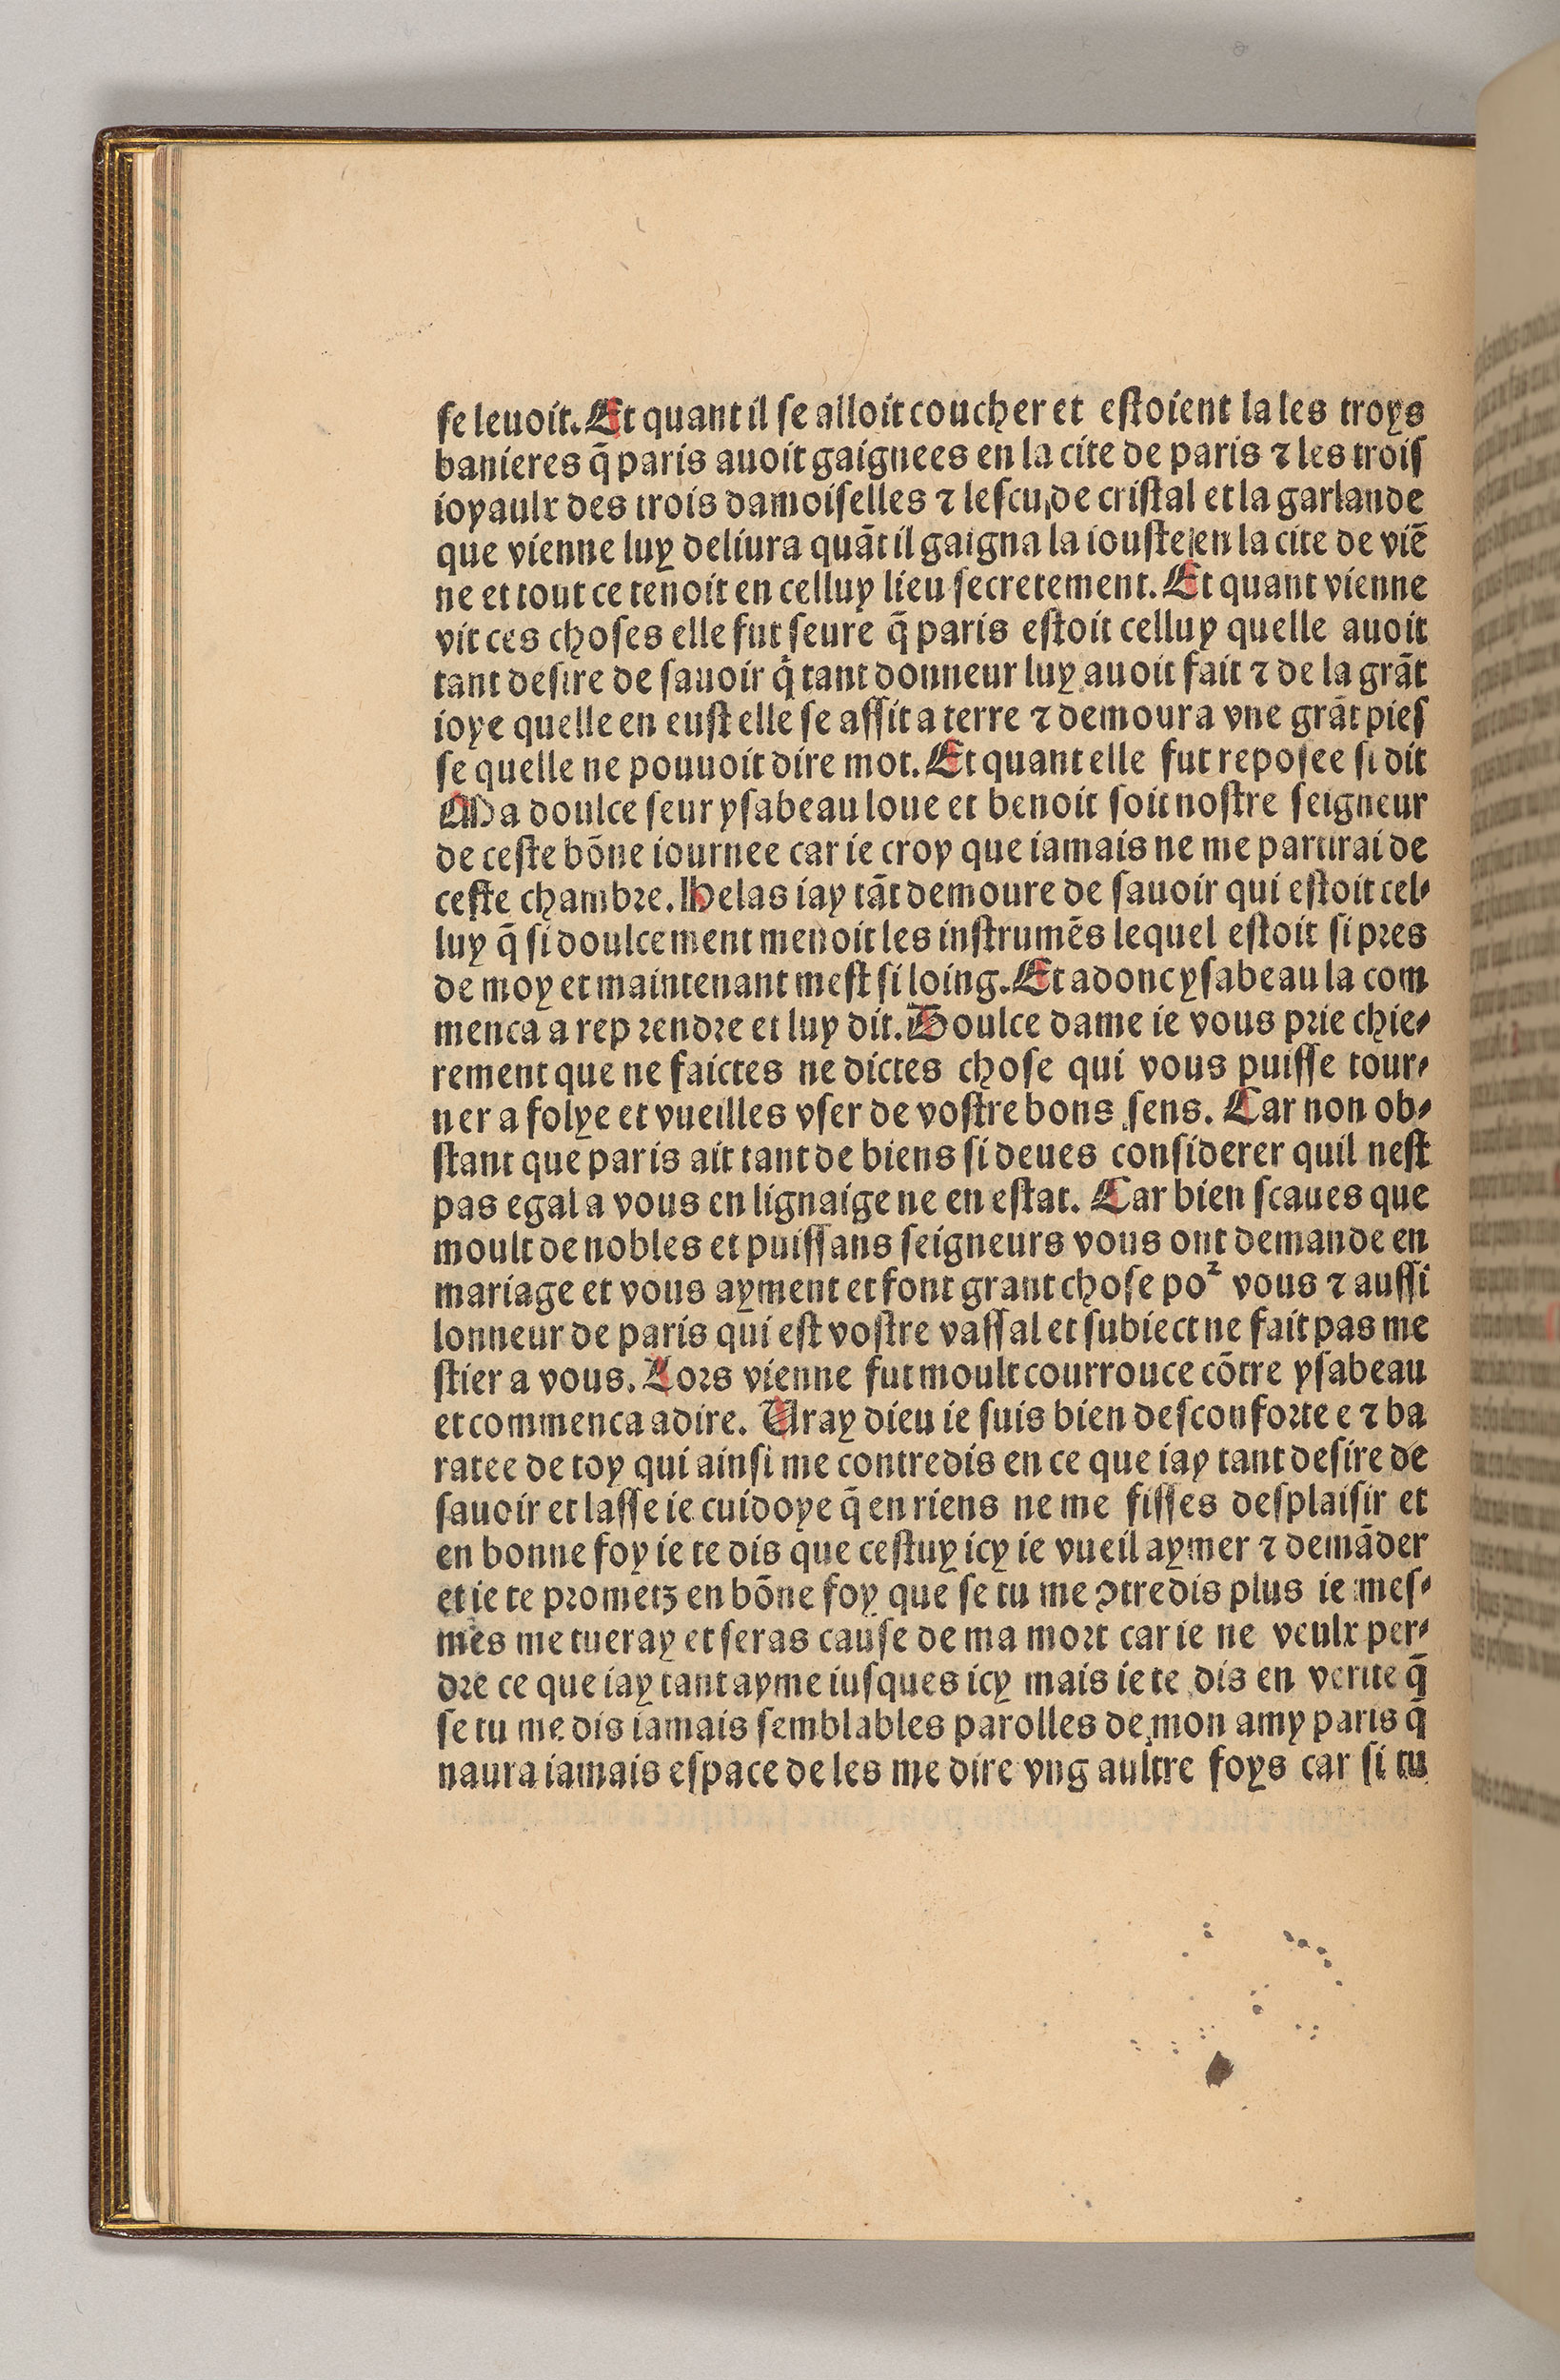 ſe leuoit. Et quant il ſe alloit coucher et eſtoient la les troys
banieres q̄ paris auoit gaignees en la cite de paris ⁊ les troiſ
ioyaulx des trois damoiſelles ⁊ leſcu de criſtal et la garlande
que vienne luy deliura quāt il gaigna la iouſte en la cite de viē
ne et tout ce tenoit en celluy lieu ſecretement. Et quant vienne
vit ces choſes elle fut ſeure q̄ paris eſtoit celluy quelle auoit
tant deſire de ſauoir q̇ tant donneur luy auoit fait ⁊ de la grāt
ioye quelle en euſt elle ſe aſſit a terre ⁊ demoura vne grāt pieſ
ſe quelle ne pouuoit dire mot. Et quant elle fut repoſee ſi dit
Ma doulce ſeur yſabeau loue et benoit ſoit noſtre ſeigneur
de ceſte bōne iournee car ie croy que iamais ne me partirai de
ceſte chambꝛe. Helas iay tāt demoure de ſauoir qui eſtoit cel⸗
luy q̄ ſi doulcement menoit les inſtrumēs lequel eſtoit ſi pꝛes
de moy et maintenant meſt ſi loing. Et adonc yſabeau la com
menca a rep ꝛendꝛe et luy dit. Doulce dame ie vous pꝛie chie⸗
rement que ne faictes ne dictes choſe qui vous puiſſe tour⸗
ner a folye et vueilles vſer de voſtre bons ſens. Car non ob⸗
ſtant que paris ait tant de biens ſi deues conſiderer quil neſt
pas egal a vous en lignaige ne en eſtat. Car bien ſcaues que
moult de nobles et puiſſans ſeigneurs vous ont demande en
mariage et vous ayment et font grant choſe poᷣ vous ⁊ auſſi
lonneur de paris qui eſt voſtre vaſſal et ſubiect ne fait pas me
ſtier a vous. Loꝛs vienne fut moult courrouce cōtre yſabeau
et commenca a dire. Uray dieu ie ſuis bien deſconfoꝛte e ⁊ ba
ratee de toy qui ainſi me contredis en ce que iay tant deſire de
ſauoir et laſſe ie cuidoye q̄ en riens ne me fiſſes deſplaiſir et
en bonne foy ie te dis que ceſtuy icy ie vueil aymer ⁊ demāder
et ie te pꝛometz en bōne foy que ſe tu me ↄtredis plus ie meſ⸗
mes me tueray et ſeras cauſe de ma moꝛt car ie ne veulx per⸗
dꝛe ce que iay tant ayme iuſques icy mais ie te dis en verite q̄
ſe tu me dis iamais ſemblables parolles de mon amy paris q̄
naura iamais eſpace de les me dire vng aultre foys car ſi tu